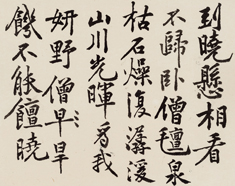 到曉懸相看
不歸卧僧氈泉
枯石燥復潺湲
山川光暉為我
妍野僧早旱
饑不能饘曉